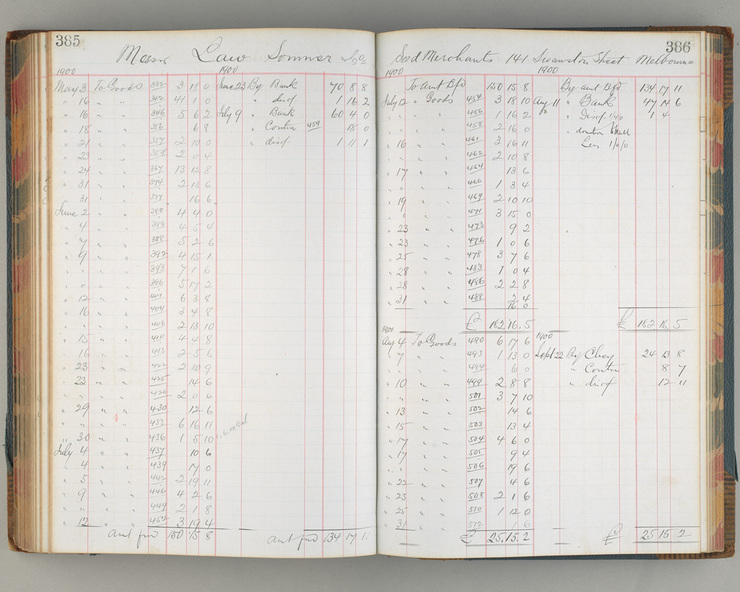 385
Law Sommer
1900 1900
May 3 To Goods 3 0 June 23 By Bank 70 8 8
16 " " 41 1 0 " disct 1 16 2
16 " " 346 5 6 2 July 9 " Bank 60 4 0
18 " " 356 6 8 " Contra 459
21 " " 357 2 10 0 " disct 1 11 1
23 " " 2 0 4
24 " " 13 12 8
31 " "
31 " " 16 6
June 2 " " 4 4 0
4 " " 4 5 4
7 " " 388 5 2 6
9 " " 392 4 15 1
" " " 393 7 1 6
" " " 396 5 17 2
12 " " 6 3 8
16 " " 404 3 4 8
" " " 2 13 10
15 " " 414 4 4 8
16 " " 2 5 6
23 " " 2 10 9
22 " " 14 6
" " " 2 0 6
29 " " 430 12 6
" " " 432 6 16 11
30 " " 436 1 5 10
July 4 " " 437 10 6
4 " " 439 17 0
5 " " 442 2 19 11
9 " " 446 4 2 6
" " " 449 2 1 8
12 " " 454 3 19 4
Amt fwd 150 15 8 Amt fwd 134 17 11
386
Merchants 141 Swanston Street Melbourne
1900 1900
To Amt Bfd 150 15 8 By amt Bfd 134 17 11
July 12 " Goods 454 3 18 10 Aug 11 " Bank 47 14 6
" " 456 1 16 2 " Disct 1 4
" " 458 2 16 0
" 16 " " 461 3 16 11 Less
" " 462 2 10 8
" 17 " " 464 13 6
" " 466 1 3 4
" 19 " " 469 2 10 10
" " 471 3 15 0
" 23 " " 473 9 2
" 23 " " 476 1 0 6
" 25 " " 478 3 7 6
" 28 " " 483 1 0 4
" 28 " " 486 2 2 8
" 31 " " 488 2 4
£ 162.16.5 £ 162.16.5
1900 1900
Aug 4 To Goods 490 6 17 6
7 " " 493 1 13 0 Sept 22 By Cheq 24 13 8
" " 494 6 0 " Contra 8 7
" 10 " " 499 2 8 8 " disct 12 11
" " 501 3 7 10
" 13 " " 502 14 6
" 15 " " 503 13 4
" 17 " " 504 4 6 0
" 17 " " 505 9 4
" " 506 19 6
" 22 " " 507 4 6
" 23 " " 508 2 1 6
" 25 " " 510 1 12 0
" 31 " " 1 6
£ 25.15.2 £ 25 15 2